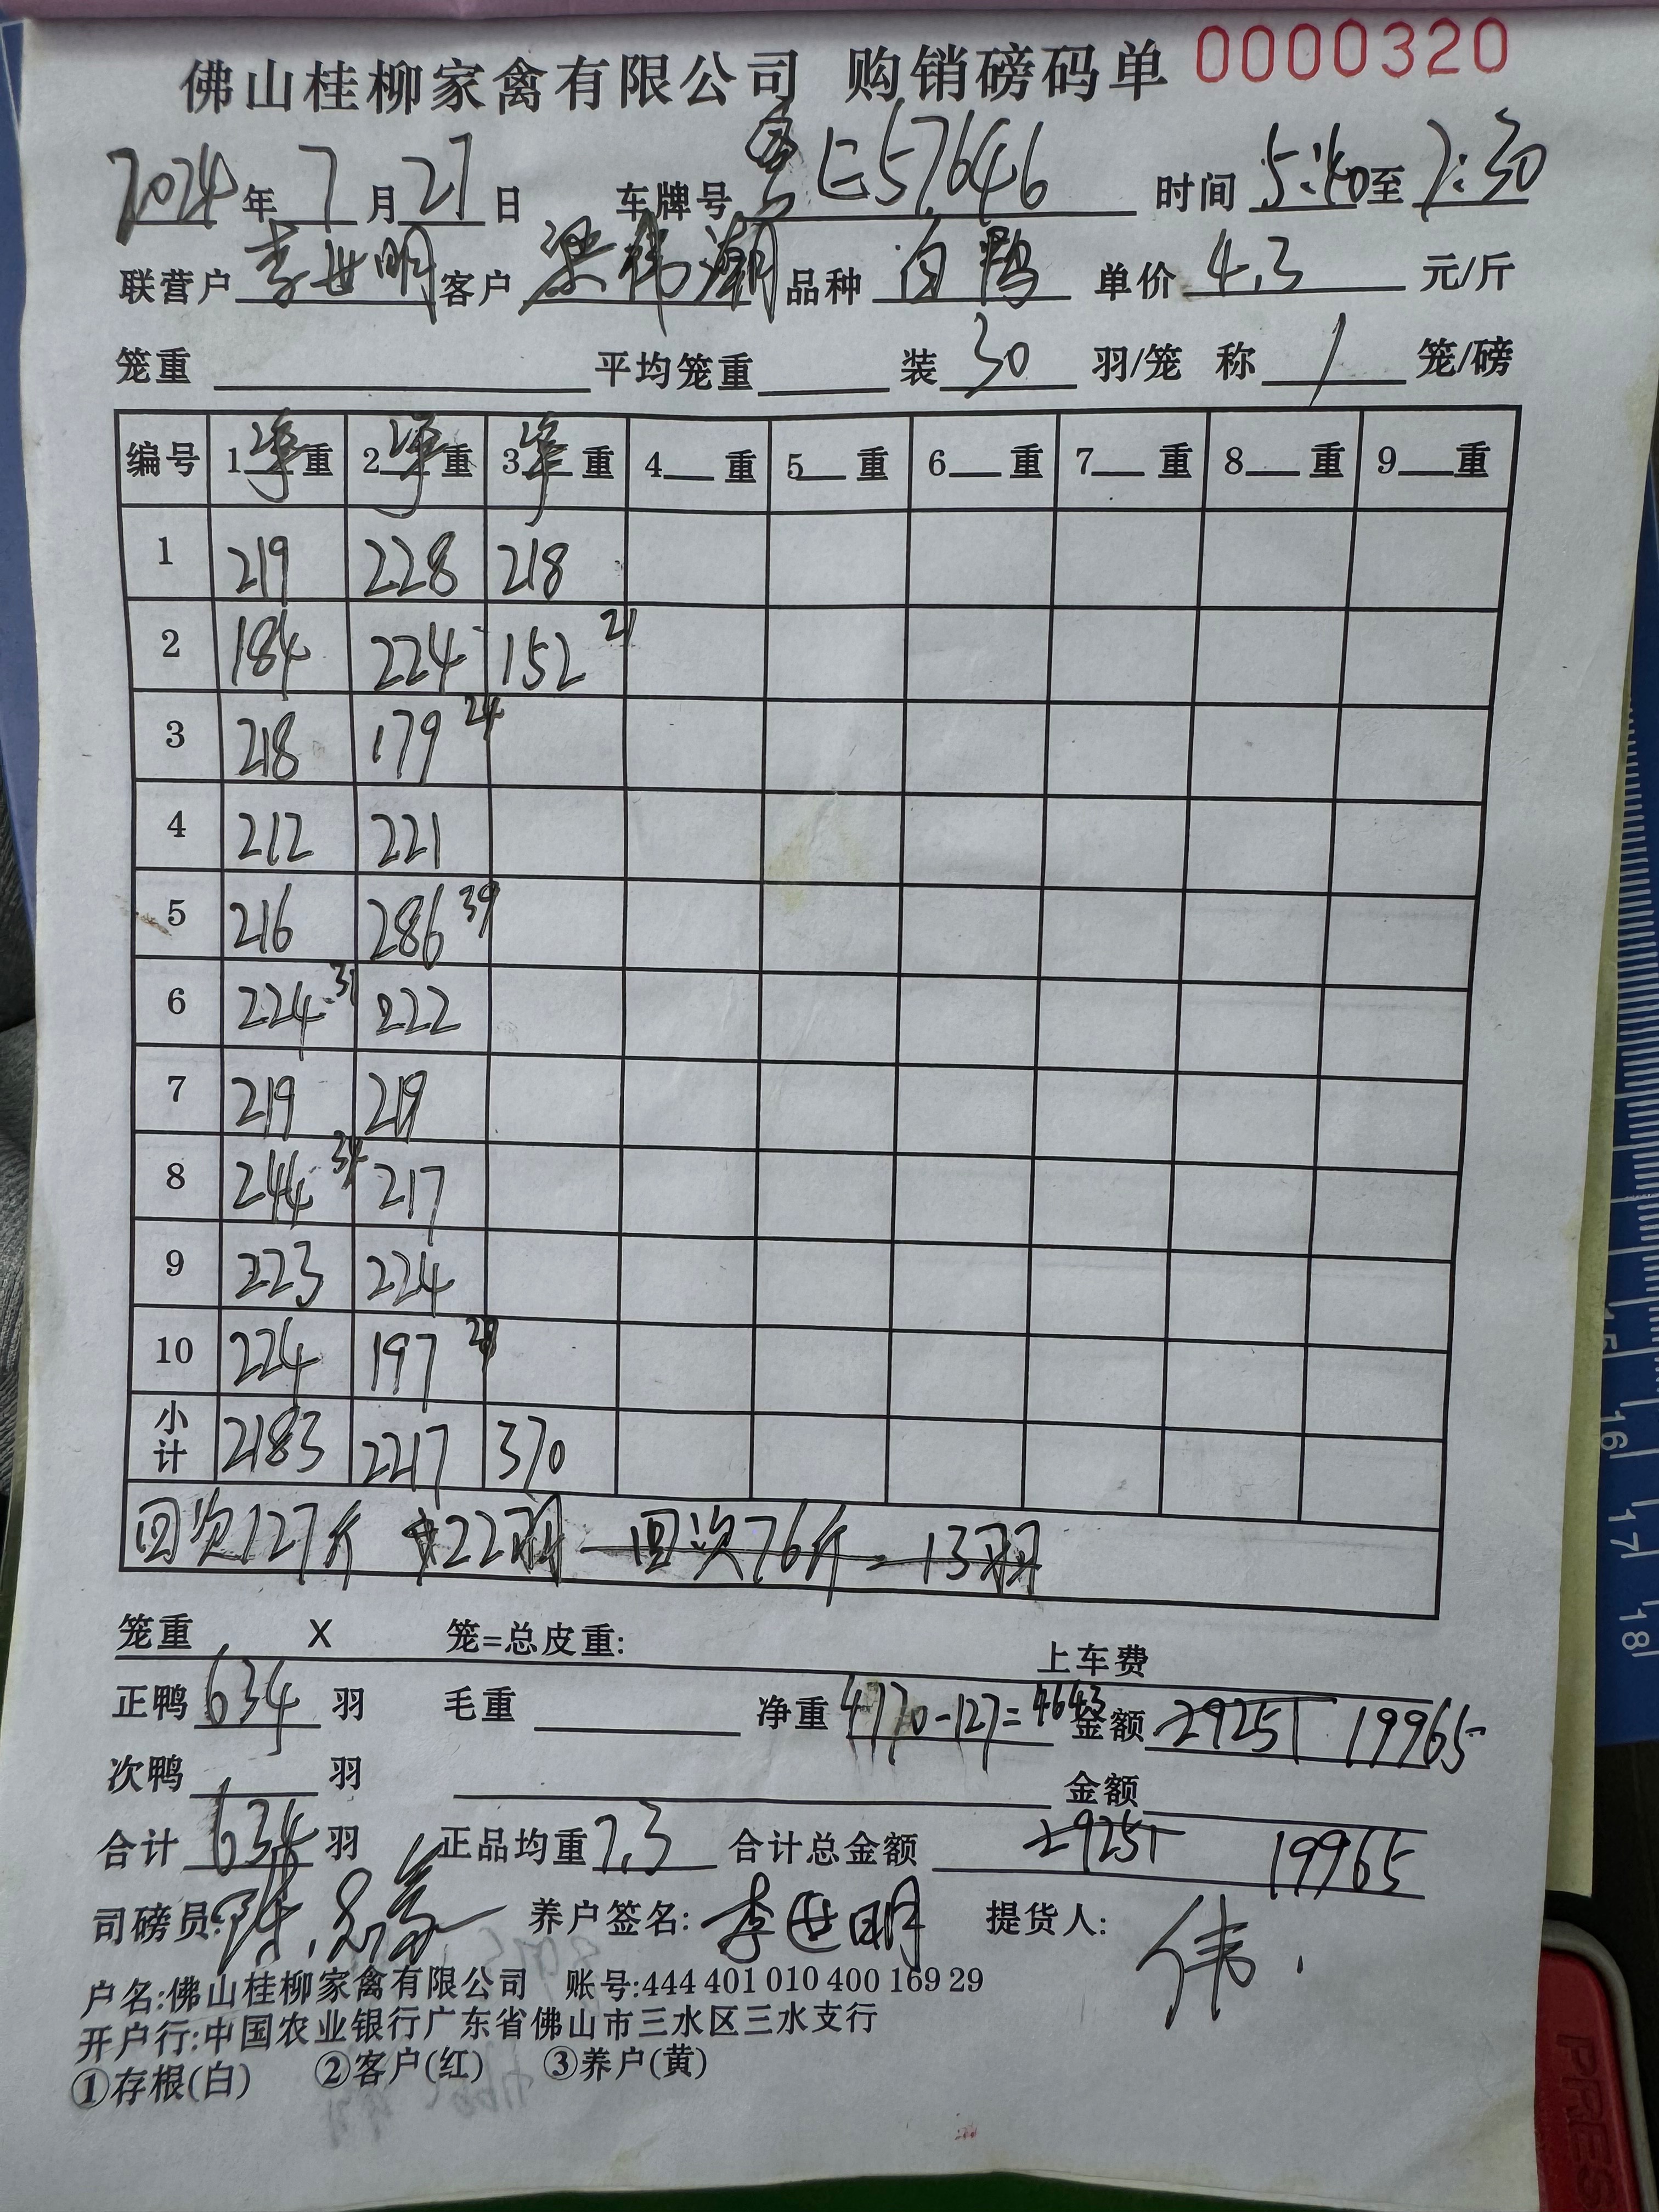 佛山桂柳家禽有限公司 购销磅码单 0000320
2024年 7 月 27 日 车牌号 粤E57646 时间 5:40至7:30
联营户 李世明 客户 梁伟潮 品种 白鸭 单价 4.3 元/斤
笼重 平均笼重 装 30 羽/笼 称 1 笼/磅
编号 1净重 2净重 3净重 4 重 5 重 6 重 7 重 8 重 9 重
1 219 228 218
2 184 224 152 21
3 218 179 24
4 212 221
5 216 286 39
6 224 31 222
7 219 219
8 244 34 217
9 223 224
10 224 197
小计 2183 2217 370
回次127斤 22羽 回次76斤 = 13羽
笼重 X 笼=总皮重: 上车费
正鸭 634 羽 毛重 净重 4770-127=4643 金额 29251 19965
次鸭 羽 金额
合计 634 羽 正品均重 7.3 合计总金额 29251 19965
司磅员: 养户签名: 李世明 提货人: 伟
户名:佛山桂柳家禽有限公司 账号:444 401 010 400 169 29
开户行:中国农业银行广东省佛山市三水区三水支行
①存根(白) ②客户(红) ③养户(黄)
16
17
18
PRES